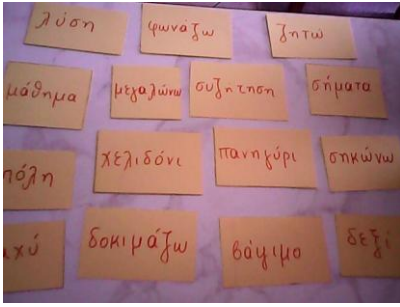 λύση φωνάζω ζητώ
μάθημα μεγαλώνω συζήτηση σήματα
πόλη χελιδόνι πανηγύρι σηκώνω
δοκιμάζω βάψιμο